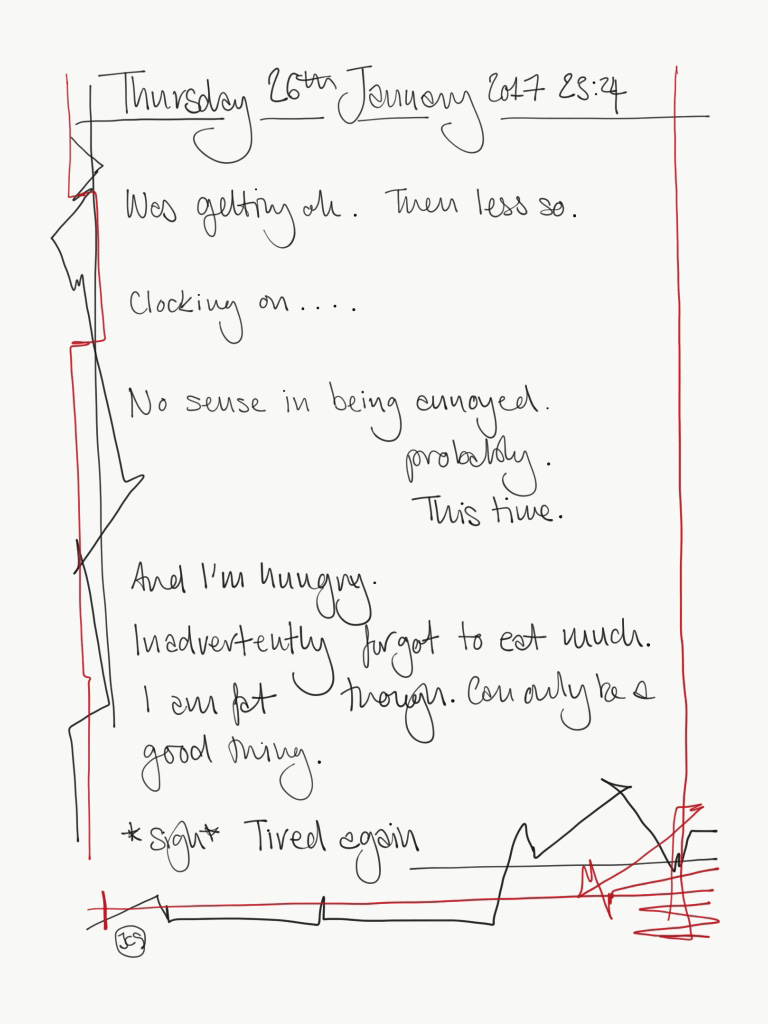 Thursday 26th January 2017 23:24
Was getting ok. Then less so.
Clocking on....
No sense in being annoyed.
probably.
This time.
And I'm hungry.
Inadvertently forgot to eat much.
I am fat though. Can only be a
good thing.
*sigh* Tired again
JCS